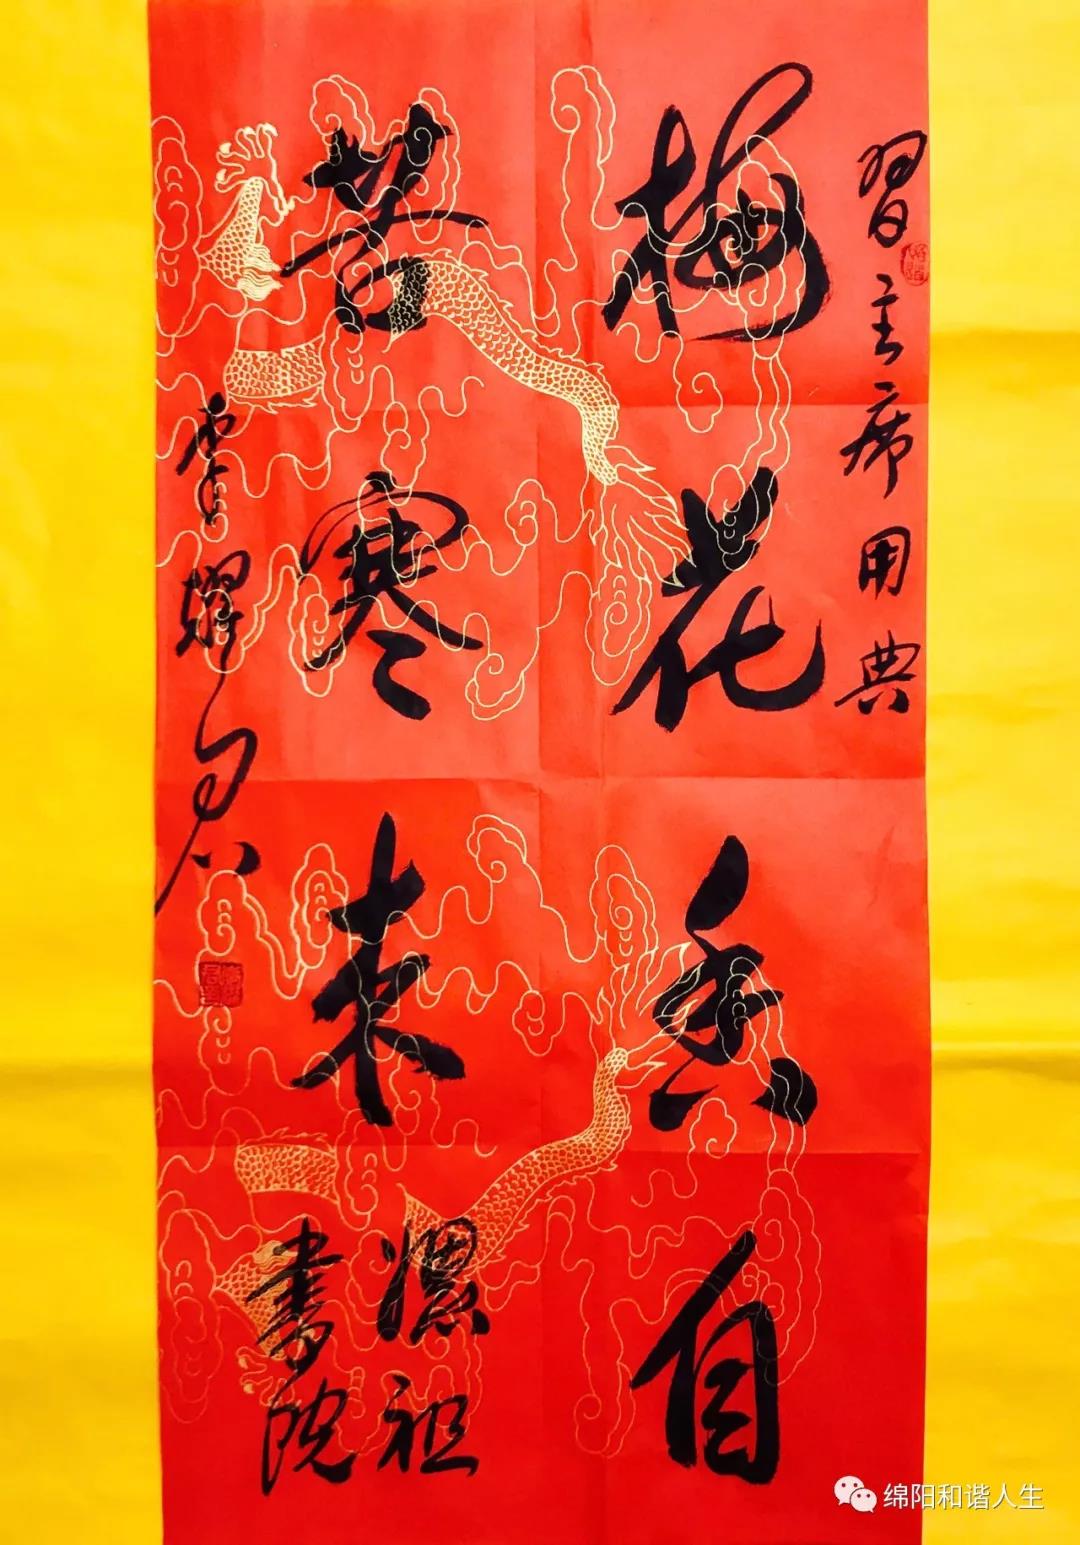 習主席用典
梅花香自
苦寒来
嫘祖
書院
李耀君
绵阳和谐人生